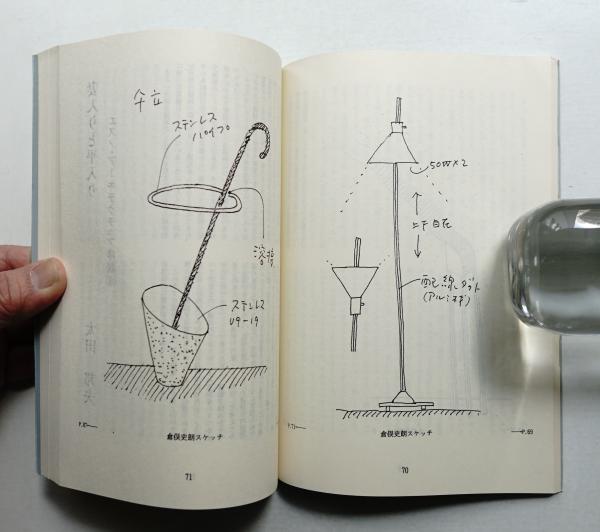 50W×2
上下自在
配線ダクト
P.71
倉俣史朗スケッチ
P.69
70
仐立
ステンレス
パイプ
溶接
ステンレス
倉俣史朗スケッチ
71